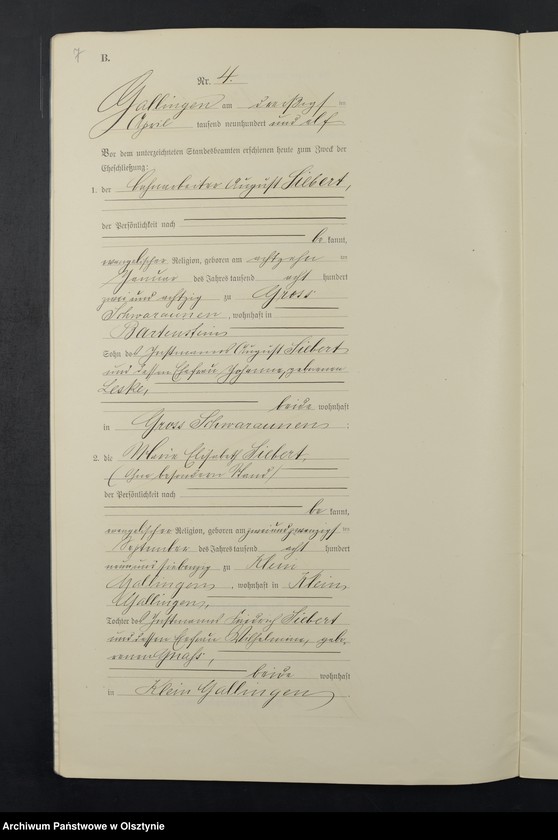 7
B.
Nr. 4.
Gallingen am dreißigsten
April tausend neunhundert und elf
Vor dem unterzeichneten Standesbeamten erschienen heute zum Zweck der
Eheschließung:
1. der Bahnarbeiter August Siebert,
der Persönlichkeit nach
be kannt,
evangelischer Religion, geboren am achtzehn ten
Januar des Jahres tausend acht hundert
zwei und achtzig zu Gross
Schwaraunen, wohnhaft in
Bartenstein
Sohn des Instmanns August Siebert
und dessen Ehefrau Johanne, geborenen
Leske,
beide wohnhaft
in Gross Schwaraunen
2. die Marie Elisabeth Siebert,
(ohne besonderen Stand)
der Persönlichkeit nach
be kannt,
evangelischer Religion, geboren am zweiundzwanzigsten
September des Jahres tausend acht hundert
neunundsiebenzig zu Klein
Gallingen, wohnhaft in Klein
Gallingen,
Tochter des Instmanns Friedrich Siebert
und dessen Ehefrau Wilhelmine, gebo-
renen
beide wohnhaft
in Klein Gallingen
Archiwum Państwowe w Olsztynie